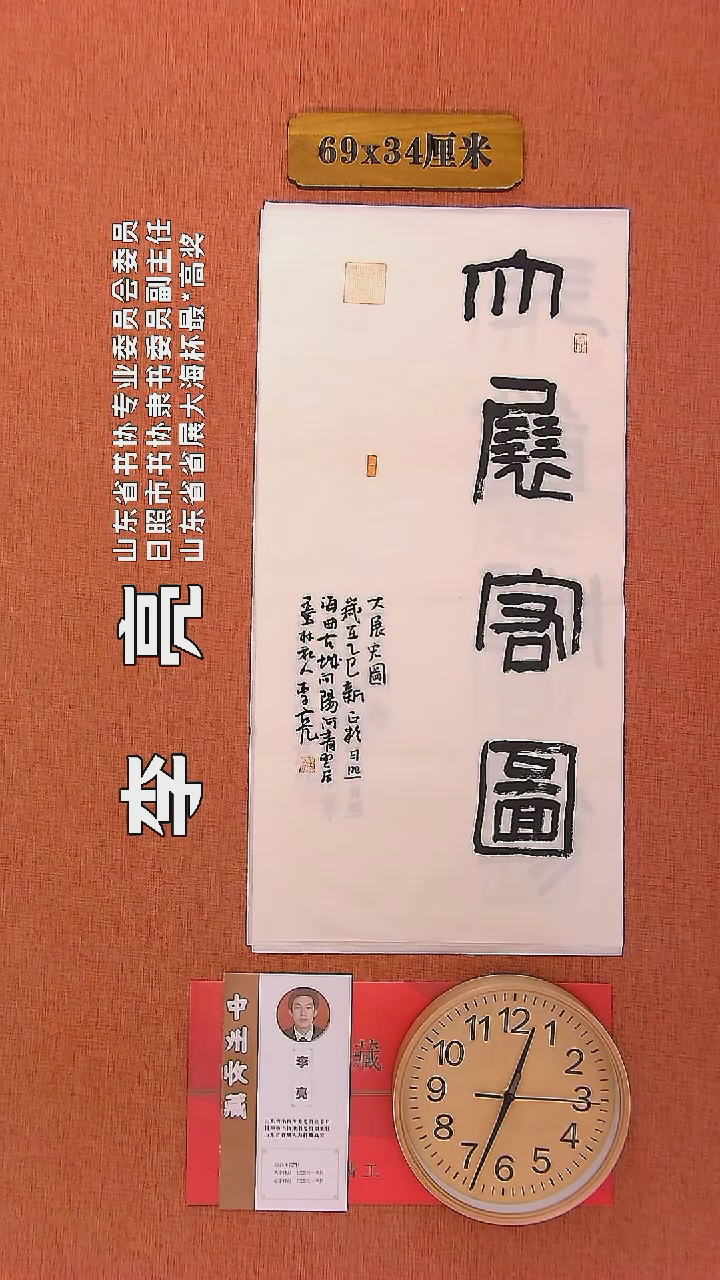 69x34厘米
大展宏圖
大展宏圖
歲在乙巳新正於日照
海曲古城向陽河青雲居
墨林散人李亮
李亮
山东省书协专业委员会委员
日照市书协隶书委员副主任
山东省省展大海杯最*高奖
藏
李
亮
12
1
2
3
4
5
6
7
8
9
10
11